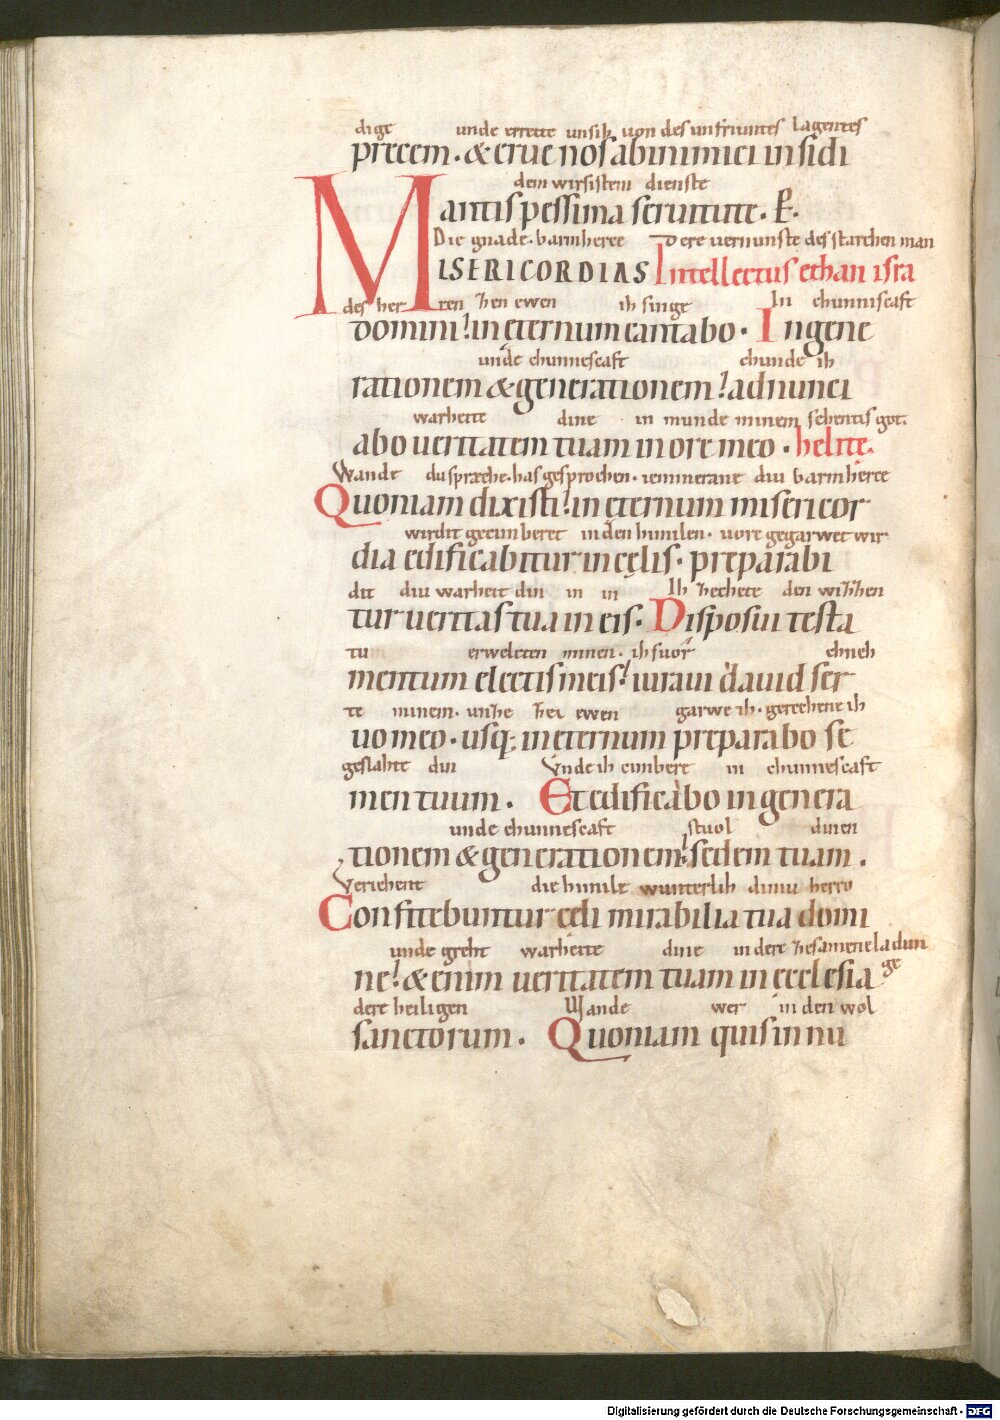 dige unde errette unsih von des unfriuntes lagentes
precem · & erue nos ab inimici insidi
dem wirsistem dienste
antis pessima seruitute · P.
Die gnade · barmherce Dere vernunste des starchen man
MISERICORDIAS Intellectus ethan isra
des her ren hen ewen ih singe In chunniscaft
domini! in eternum cantabo · In gene
unde chunnescaft chunde ih
rationem & generationem! adnunci
warheite dine in munde minem sehentis got.
abo ueritatem tuam in ore meo · helite.
Wande du spræche · has gesprochen · iemmerane diu barmherce
Quoniam dixisti! in eternum misericor
wirdit gecimberet in den himilen · vore gegarwet wir
dia edificabitur in cęlis · preparabi
dit diu warheit din in in Ih hechete den wihhen
tur ueritas tua in eis · Disposui testa
tum erweleten minen · ih suor chneh
mentum electis meis! iuraui dauid ser
te minem · unhe hei ewen garwe ih · gerechene ih
uo meo · usq; in eternum preparabo se
geslahte din Unde ih cimbere in chunnescaft
men tuum · Et edificabo in genera
unde chunnescaft stuol dinen
tionem & generationem! sedem tuam .
Veriehent die himile wunterlih diniu herro
Confitebuntur celi mirabilia tua domi
unde greht warheite dine in dere hesamene ladun
ne! & enim ueritatem tuam in ecclesia ge
dere heiligen Wande wer in den wol
sanctorum . Quoniam quis in nu
Digitalisierung gefördert durch die Deutsche Forschungsgemeinschaft - DFG